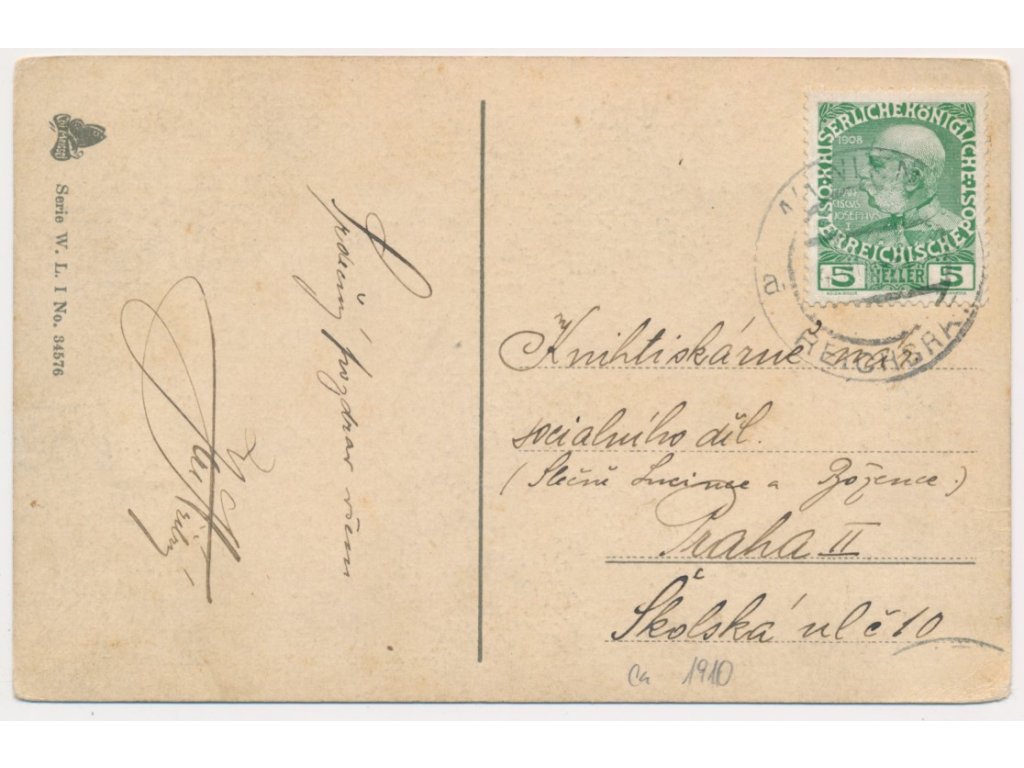 Serie W. L. I No. 34576
Srdečný pozdrav všem
KAISERLICHE KÖNIGLICHE
ÖSTERREICHISCHE POST
1908
FRAN
CISCVS
JOSEPHVS
I
5 HELLER 5
Knihtiskárně
socialního děl.
(Slečně Lucince a Božence.)
Praha II
Školská ul č 10
ca 1910